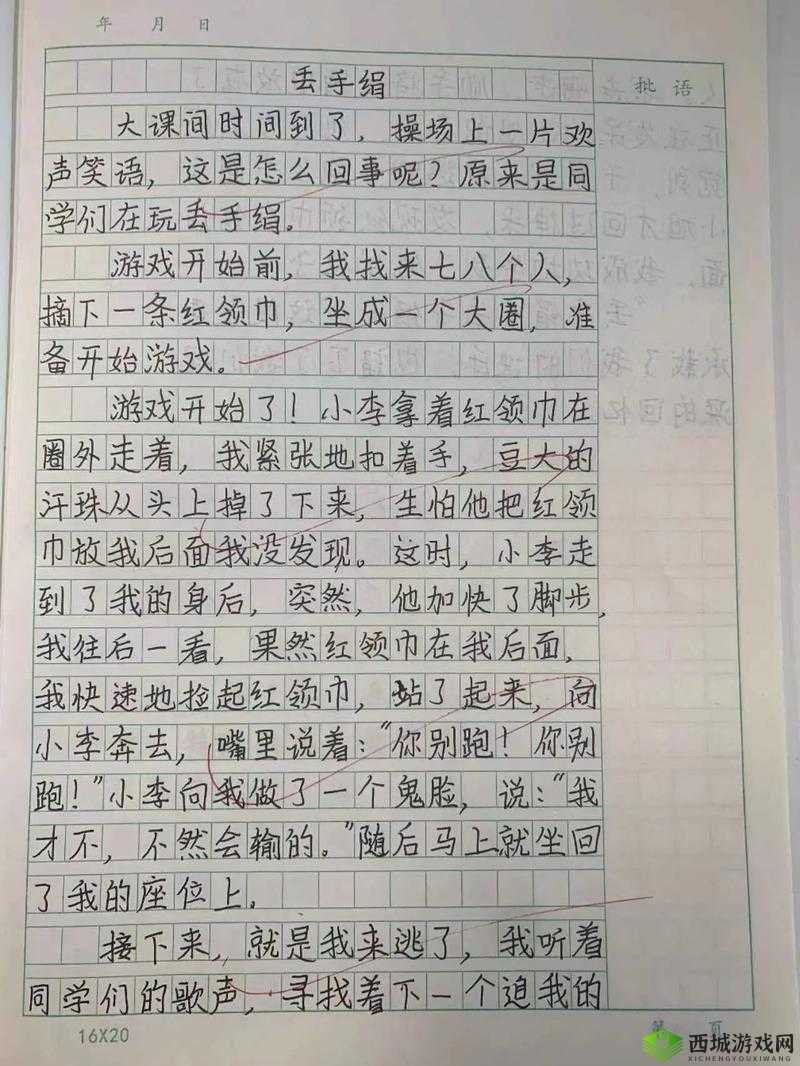 年 月 日
丢手绢
批语
大课间时间到了，操场上一片欢
声笑语，这是怎么回事呢？原来是同
学们在玩丢手绢。
游戏开始前，我找来七八个人，
摘下一条红领巾，坐成一个大圈，准
备开始游戏。
游戏开始了！小李拿着红领巾在
圈外走着，我紧张地扣着手，豆大的
汗珠从头上掉了下来，生怕他把红领
巾放我后面我没发现。这时，小李走
到了我的身后，突然，他加快了脚步，
我往后一看，果然红领巾在我后面，
我快速地捡起红领巾，站了起来，向
小李奔去，嘴里说着：“你别跑！你别
跑！”小李向我做了一个鬼脸，说：“我
才不，不然会输的。”随后马上就坐回
了我的座位上。
接下来，就是我来逃了，我听着
同学们的歌声，寻找着下一个追我的
16X20
第 页
西城游戏网
XICHENGYOUXIWANG